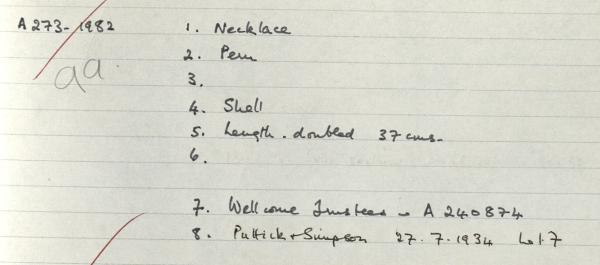 A 273-1982
1. Necklace
2. Peru
3.
aa.
4. Shell
5. Length. doubled 37 cms.
6.
7. Wellcome Trustees A 240874
8. Puttick & Simpson 27.7.1934 Lot 7